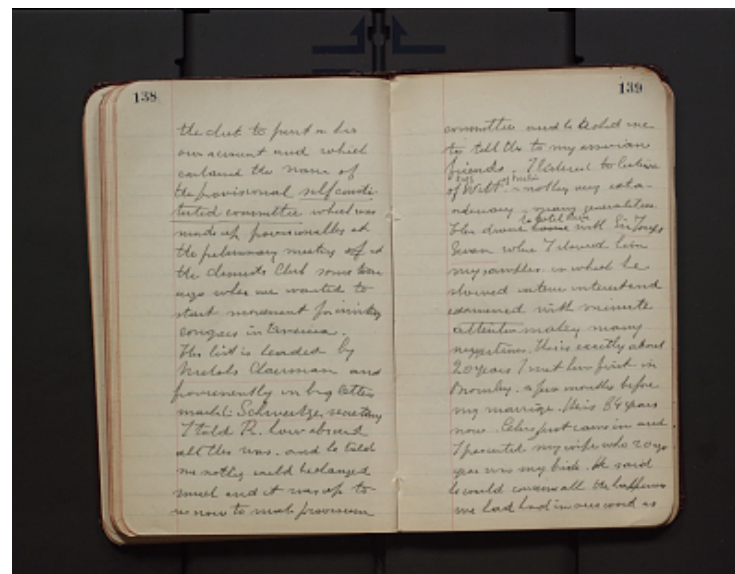 138
the chit to print on his
own account and which
contained the name of
the provisional self consti-
tuted committee which was
made up provisionally at
the preliminary meeting of it
the Chemists Club some
ago when we wanted to
start movement for inviting
congress in America.
The list is headed by
Nichols Chairman and
prominently in big letters
Schweitzer, secretary
I told R. how absurd
all this was. and he told
me nothing could be changed
and it was up to
us now to make provision
139
committee and he asked me
to tell this to my american
friends. I listened to lecture
of Witt. nothing very extra-
ordinary - many generalities.
Then drove to hotel with Sir Joseph
Swan where I showed him
my samples in which he
showed intense interest and
examined with minute
attention making many
suggestions. This is exactly about
20 years I met him first in
Bromley. a few months before
my marriage. He is 84 years
now. Celine just came in and
I presented my wife who 20 years
ago was my bride. He said
he could all the happiness
we had had in one word as